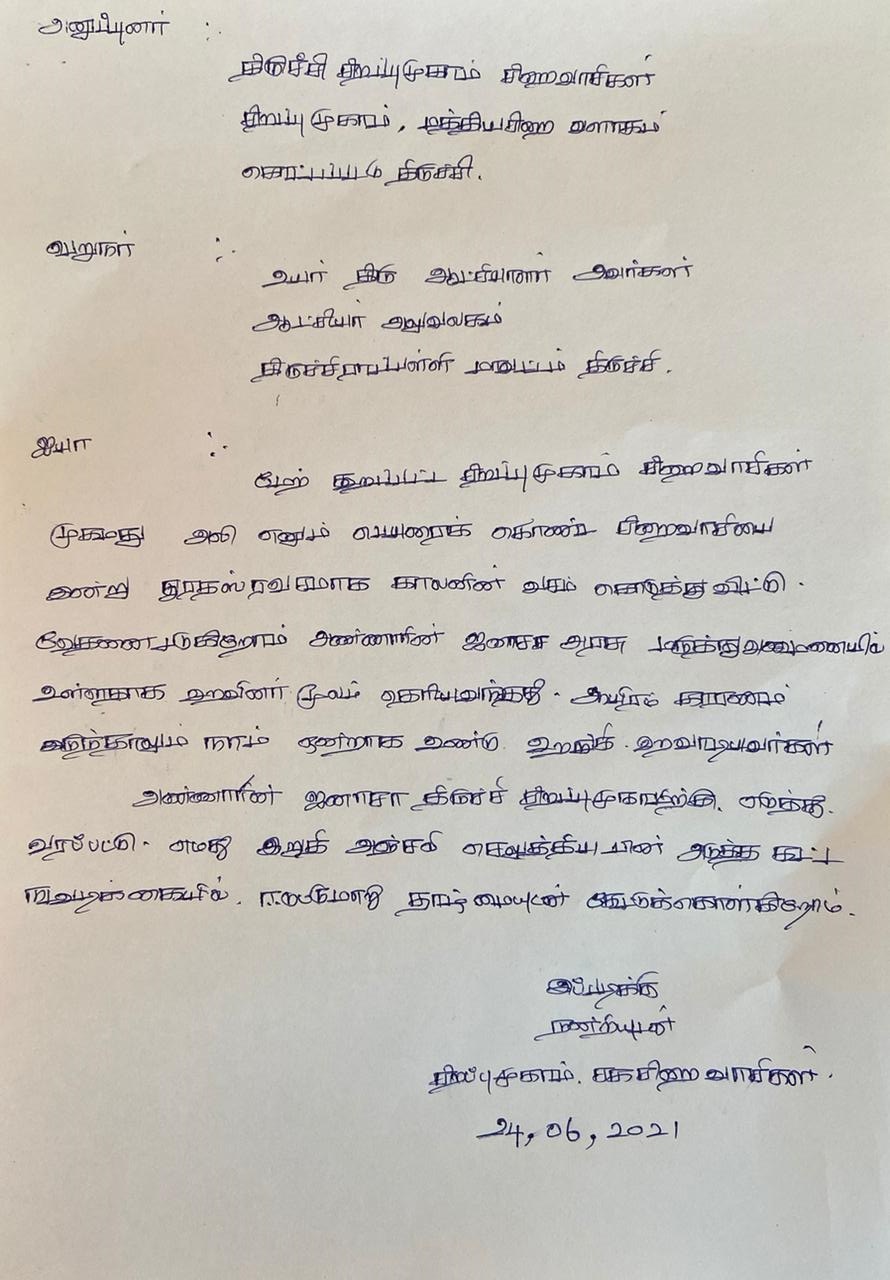 அனுப்புனர் :.
திருச்சி சிறப்புமுகாம் சிறைவாசிகள்
சிறப்பு முகாம், மத்தியசிறை வளாகம்
கொட்டப்பட்டு திருச்சி.
பெறுநர் :.
உயர் திரு ஆட்சியாளர் அவர்கள்
ஆட்சியர் அலுவலகம்
திருச்சிராப்பள்ளி மாவட்டம் திருச்சி.
ஐயா :.
மேற் கூறப்பட்ட சிறப்பு முகாம் சிறைவாசிகள்
முகமது அலி எனும் பெயரைக் கொண்ட சிறைவாசியை
இன்று காலனின் வசம் கொடுத்து விட்டு.
வேதனைபடுகிறோம் அன்னாரின் ஜனாசா அரசு மருத்துவமனையில்
உள்ளதாக உறவினர் மூலம் தெரியவந்தது. ஆயிரம் காரணம்
நாம் ஒன்றாக உண்டு உறங்கி. உறவாடியவர்கள்
அன்னாரின் ஜனாசா திருச்சி சிறப்பு முகாமிற்கு. எடுத்து.
வரப்பட்டு. எமது இறுதி அஞ்சலி செலுத்திய பின் அடுத்த கட்ட
நடவடிக்கையில். ஈடுபடுமாறு தாழ்மையுடன் கேட்டுக்கொள்கிறோம்.
இப்படிக்கு
நன்றியுடன்
சிறப்பு முகாம். சக சிறை வாசிகள்.
24, 06, 2021